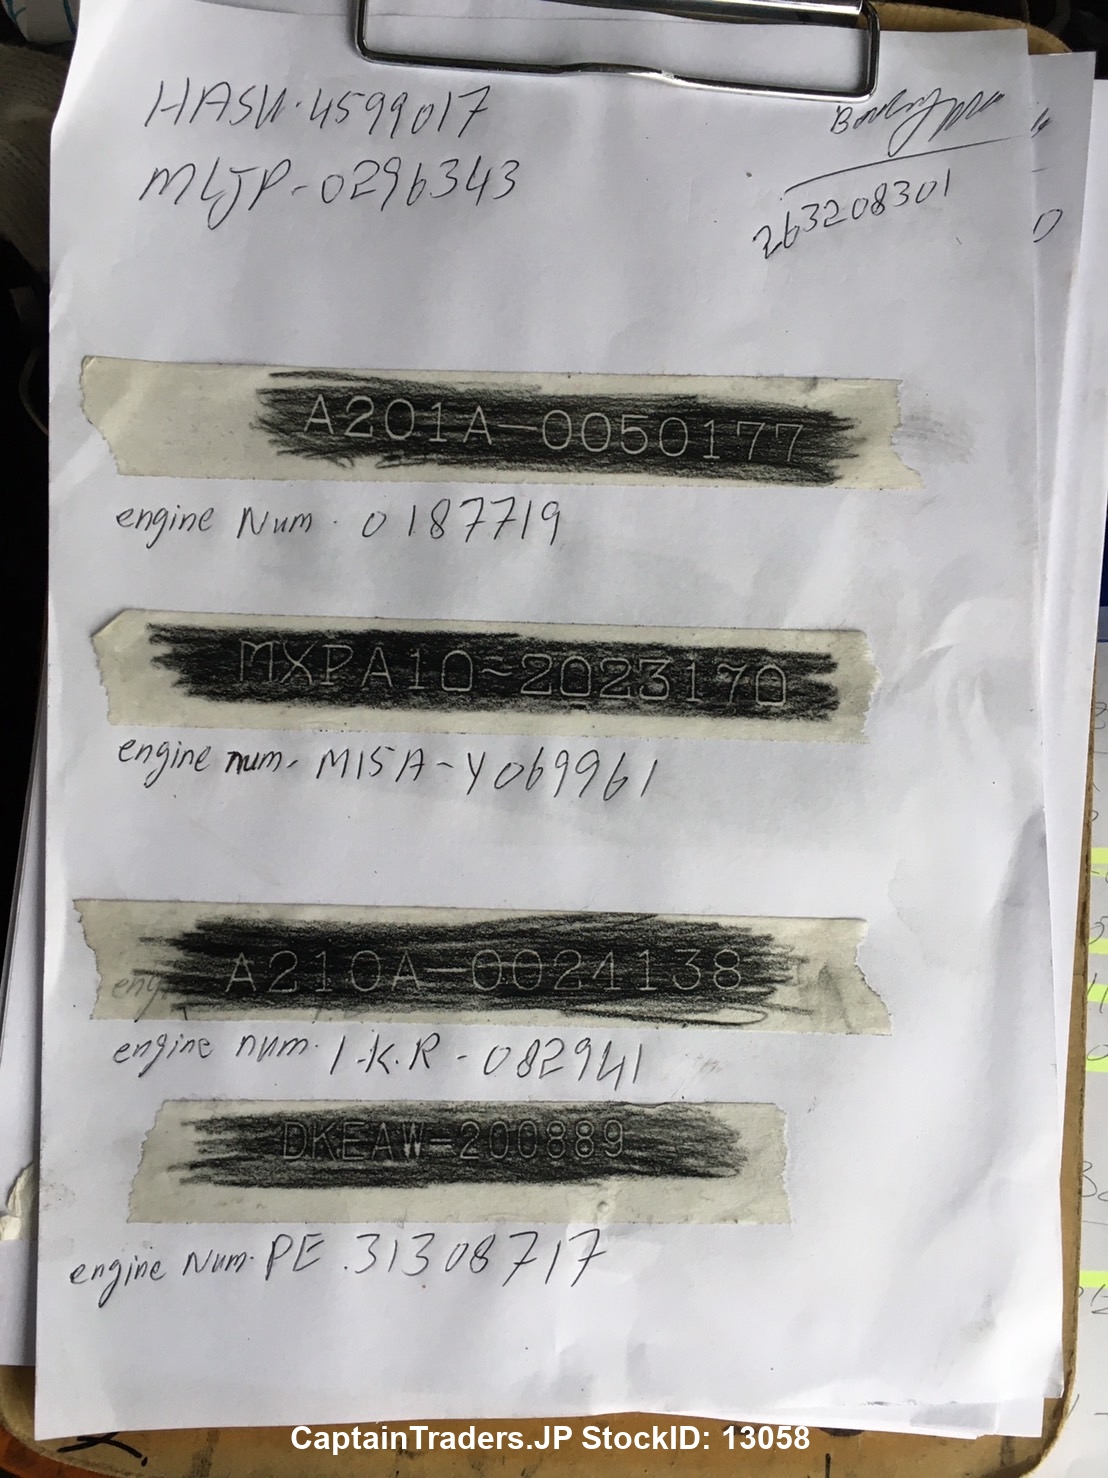 HASU.4599017
MLJP-0296343
263208301
A201A-0050177
engine Num. 0187719
MXPA10-2023170
engine num. M15A-Y069961
A210A-0024138
engine num. 1.K.R-082941
DKEAW-200889
engine Num. PE.31308717
CaptainTraders.JP StockID: 13058